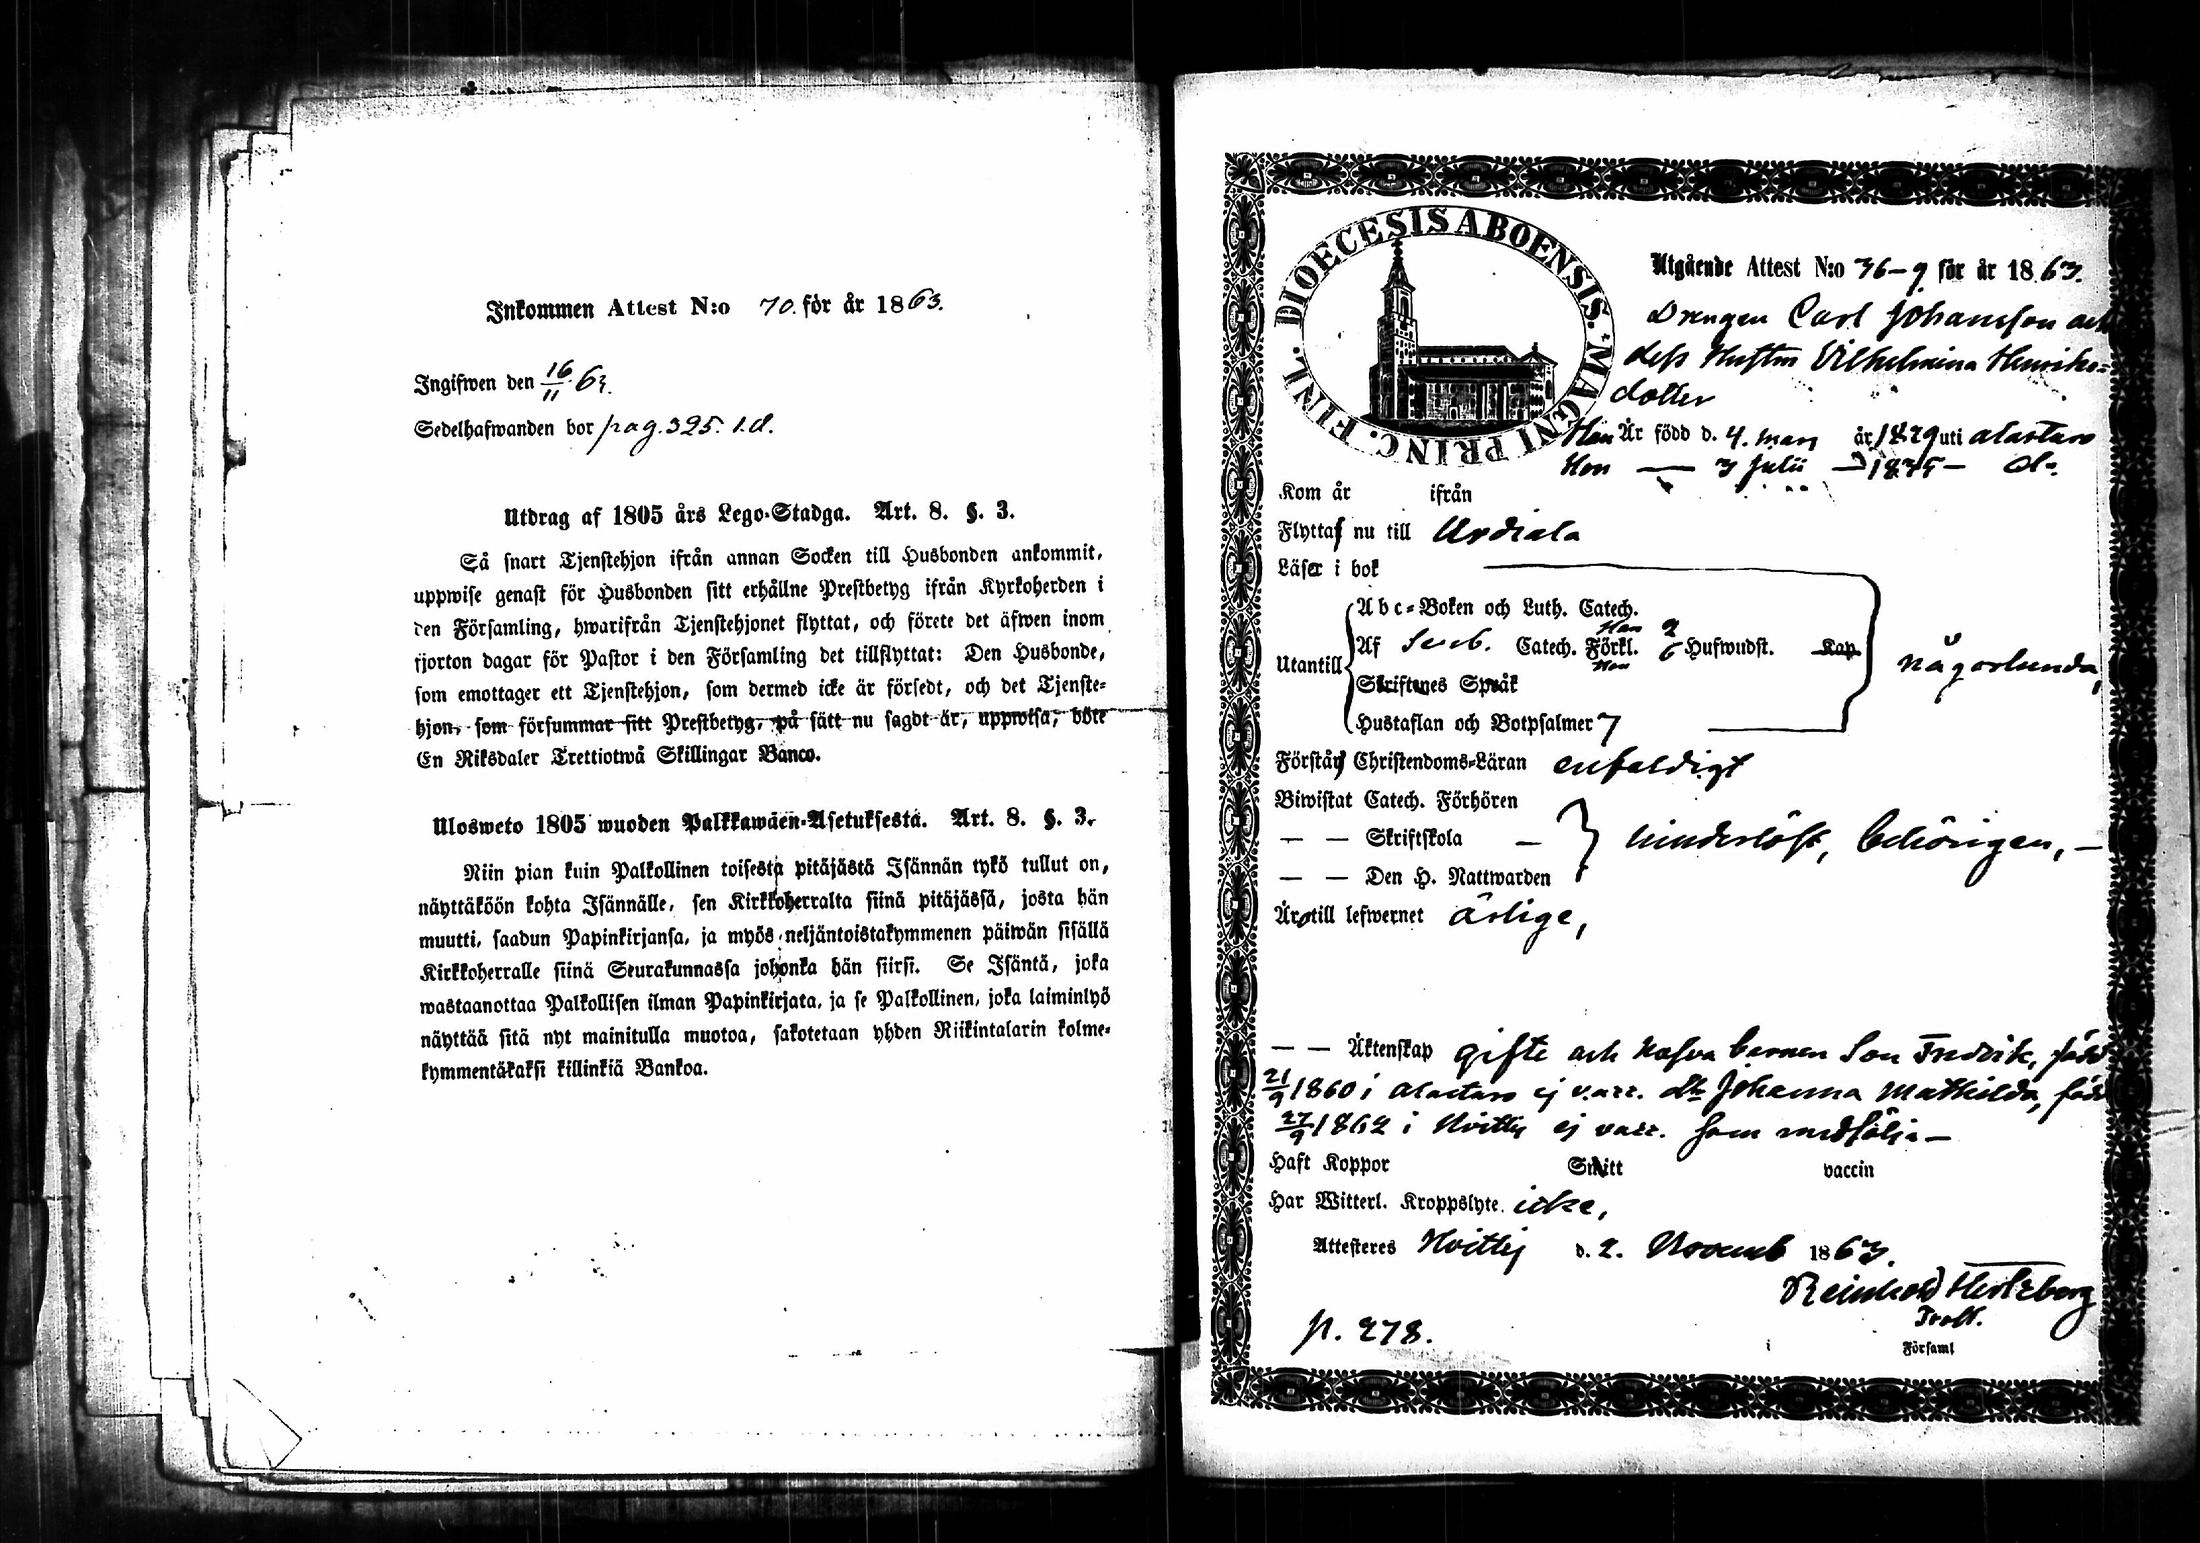 Inkommen Attest N:o 70. för år 1863.
Ingifwen den 16/11 63.
Sedelhafwanden bor pag. 325. 1.d.
Utdrag af 1805 års Lego-Stadga. Art. 8. §. 3.
Så snart Tjenstehjon ifrån annan Socken till Husbonden ankommit,
uppwise genast för Husbonden sitt erhållne Prestbetyg ifrån Kyrkoherden i
den Församling, hwarifrån Tjenstehjonet flyttat, och förete det äfwen inom
fjorton dagar för Pastor i den Församling det tillflyttat: Den Husbonde,
som emottager ett Tjenstehjon, som dermed icke är försedt, och det Tjenste-
hjon, som försummar sitt Prestbetyg, på sätt nu sagdt är, uppwisa, böte
En Riksdaler Trettiotwå Skillingar Banco.
Ulosweto 1805 wuoden Palkkawäen-Asetuksesta. Art. 8. §. 3.
Niin pian kuin Palkollinen toisesta pitäjästä Isännän tykö tullut on,
näyttäköön kohta Isännälle, sen Kirkkoherralta siinä pitäjässä, josta hän
muutti, saadun Papinkirjansa, ja myös neljäntoistakymmenen päiwän sisällä
Kirkkoherralle siinä Seurakunnassa johonka hän siirsi. Se Isäntä, joka
wastaanottaa Palkollisen ilman Papinkirjata, ja se Palkollinen, joka laiminlyö
näyttää sitä nyt mainitulla muotoa, sakotetaan yhden Riikintalarin kolme-
kymmentäkaksi killinkiä Bankoa.
DIOECESIS ABOENSIS. MAGNI PRINC. FINL.
Utgående Attest N:o 36-9 för år 1863.
Drengen Carl Johansson och
dess Hustru Vilhelmina Henriks-
dotter
Han Är född d. 4. mars år 1829 uti Alastaro
Hon — 3 Julii — 1835 — d:o
Kom år ifrån
Flytta nu till Urdiala
Läser i bok
Abc-Boken och Luth. Catech.
Utantill Af Sveb. Catech. Förkl. Han 2 Hon 6 Hufwudst. Kap någorlunda,
Skriftenes Språk
Hustaflan och Botpsalmer 7
Förstår Christendoms-Läran enfaldigt
Biwistat Catech. Förhören
— — Skriftskola — hinderlöst, behörigen, —
— — Den H. Nattwarden
Är till lefwernet ärlige,
— — Äktenskap gifte och hafva barnen Son Fredrik, född
21/9 1860 i Alastaro ej vacc. dr Johanna Mathilda, född
27/9 1862 i Hvittis ej vacc. som medfölja —
Haft Koppor Smitt vaccin
Har Witterl. Kroppslyte icke,
Attesteres Hvittis d. 2. Novemb 1863.
Reinhold Hertzberg
Prost.
p. 278.
i Församl